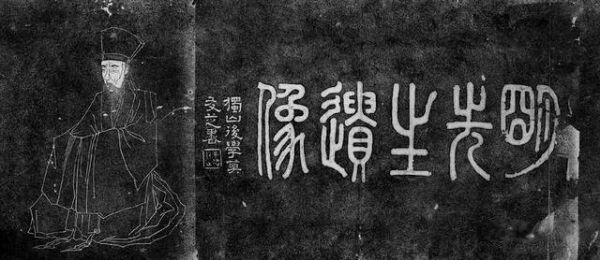 明先生遺像
獨山後學莫
友芝書